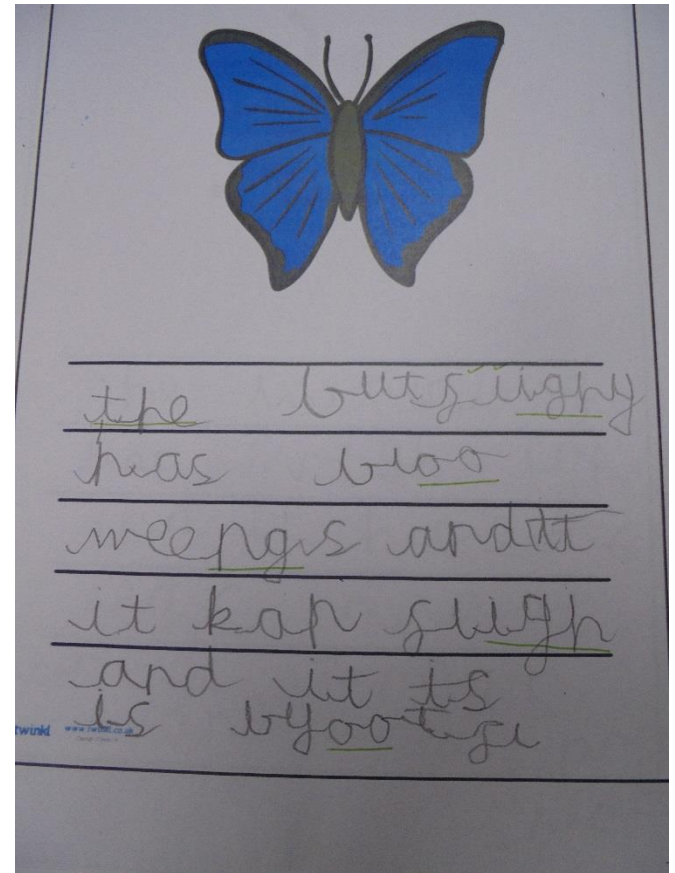 the butflighy
has bloo
weengs andit
it kan fligh
and it is
is byootfl
twinkl www.twinkl.co.uk